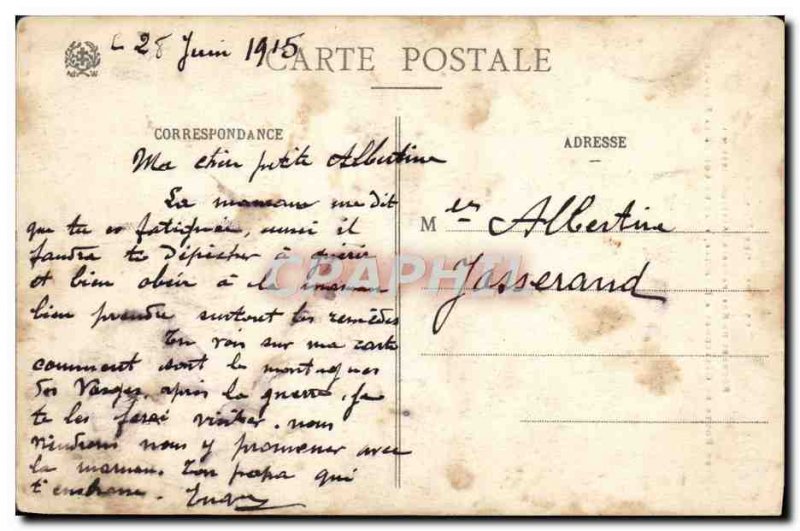 Le 28 Juin 1915
CARTE POSTALE
CORRESPONDANCE
ADRESSE
Ma chère petite Albertine
La maman me dit
que tu es fatiguée, aussi il
faudra te dépêcher à guérir
et bien obéir à la maman
bien prendre surtout tes remèdes
Tu vois sur ma carte
comment sont les montagnes
des Vosges, après la guerre, je
te les ferai visiter. nous
viendrons nous y promener avec
la maman. Ton papa qui
t'embrasse.
M elle Albertine
Jasserand
CPAPHIL